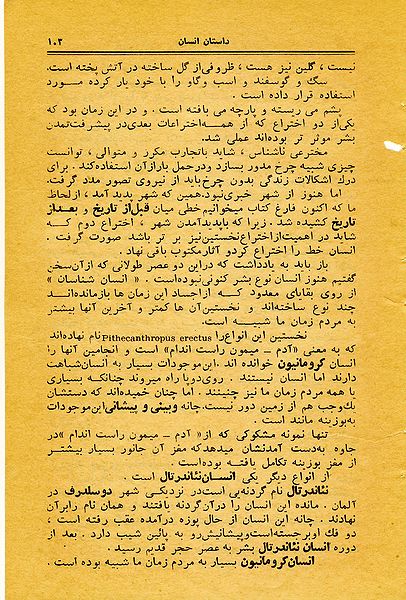 داستان انسان
۱۰۲
نیست ، گلین نیز هست ، ظروفی از گل ساخته در آتش پخته است.
سگ و گوسفند و اسب و گاو را با خود یار کرده مورد
استفاده قرار داده است .
پشم می ریسته و پارچه می بافته است . و در این زمان بود که
یکی از دو اختراع که از همه اختراعات بعدی در پیشرفت تمدن
بشر موثر تر بوده اند عملی شد.
مخترعی ناشناس ، شاید با تجارب مکرر و متوالی ، توانست
چیزی شبیه چرخ مدور بسازد و در حمل بار از آن استفاده کند . برای
درك اشکالات زندگی بدون چرخ باید از نیروی تصور مدد گرفت
اما هنوز از شهر خبری نبود. همین که شهر پدید آمد ، از لحاظ
ما که اکنون فارغ کتاب میخوانیم خطی میان قبل از تاریخ و بعد از
تاریخ کشیده شد . زیرا که با پدید آمدن شهر ، اختراع دوم که
شاید در اهمیت از اختراع نخستین نیز بر تر باشد صورت گرفت .
انسان خط را اختراع کرد و آثار مکتوب باقی نهاد .
باز باید به یادداشت که در این دو عصر طولانی که از آن سخن
گفتیم هنوز انسان نوع بشر کنونی نبوده است . « انسان شناسان »
از روی بقایای معدود که از اجساد این زمان ها بازمانده اند
چند نوع ساخته اند و نخستین آن ها کمتر و آخرین آنها بیشتر
به مردم زمان ما شبیه است.
نخستین این انواع را Pithecanthropus erectus نام نهاده اند
که به معنی «آدم ـ میمون راست اندام» است و انجامین آنها را
انسان کرومانیون خوانده اند . این موجودات بسیار به انسان شباهت
دارند اما انسان نیستند . روی دوپا راه میروند چنانکه بسیاری
با همه مردم زمان ما نیز چنینند . اما چنان خمیده اند که دستشان
یك وجب هم از زمین دور نیست. چانه و بینی و پیشانی این موجودات
به بوزینه مانند است .
تنها نمونه مشکوکی که از «آدم ـ میمون راست اندام » در
جاوه به دست آمد نشان میدهد که مغز آن جانور بسیار بیشتر
از مغز بوزینه تکامل یافته بوده است .
از انواع دیگر یکی انسان نئاندرتال است .
نئاندرتال نام گردنه یی است در نزدیکی شهر دوسلدرف در
آلمان . مانده این انسان را در آن گردنه یافتند و همان نام را بر آن
نهادند . چانه این انسان از حال پوزه در آمده عقب رفته است ،
دو فك او برجسته است و پیشانیش رو به پائین شیب دارد . بعد از
دوره انسان نئاندرتال بشر به عصر حجر قدیم رسید .
انسان کرومانیون بسیار به مردم زمان ما شبیه بوده است .